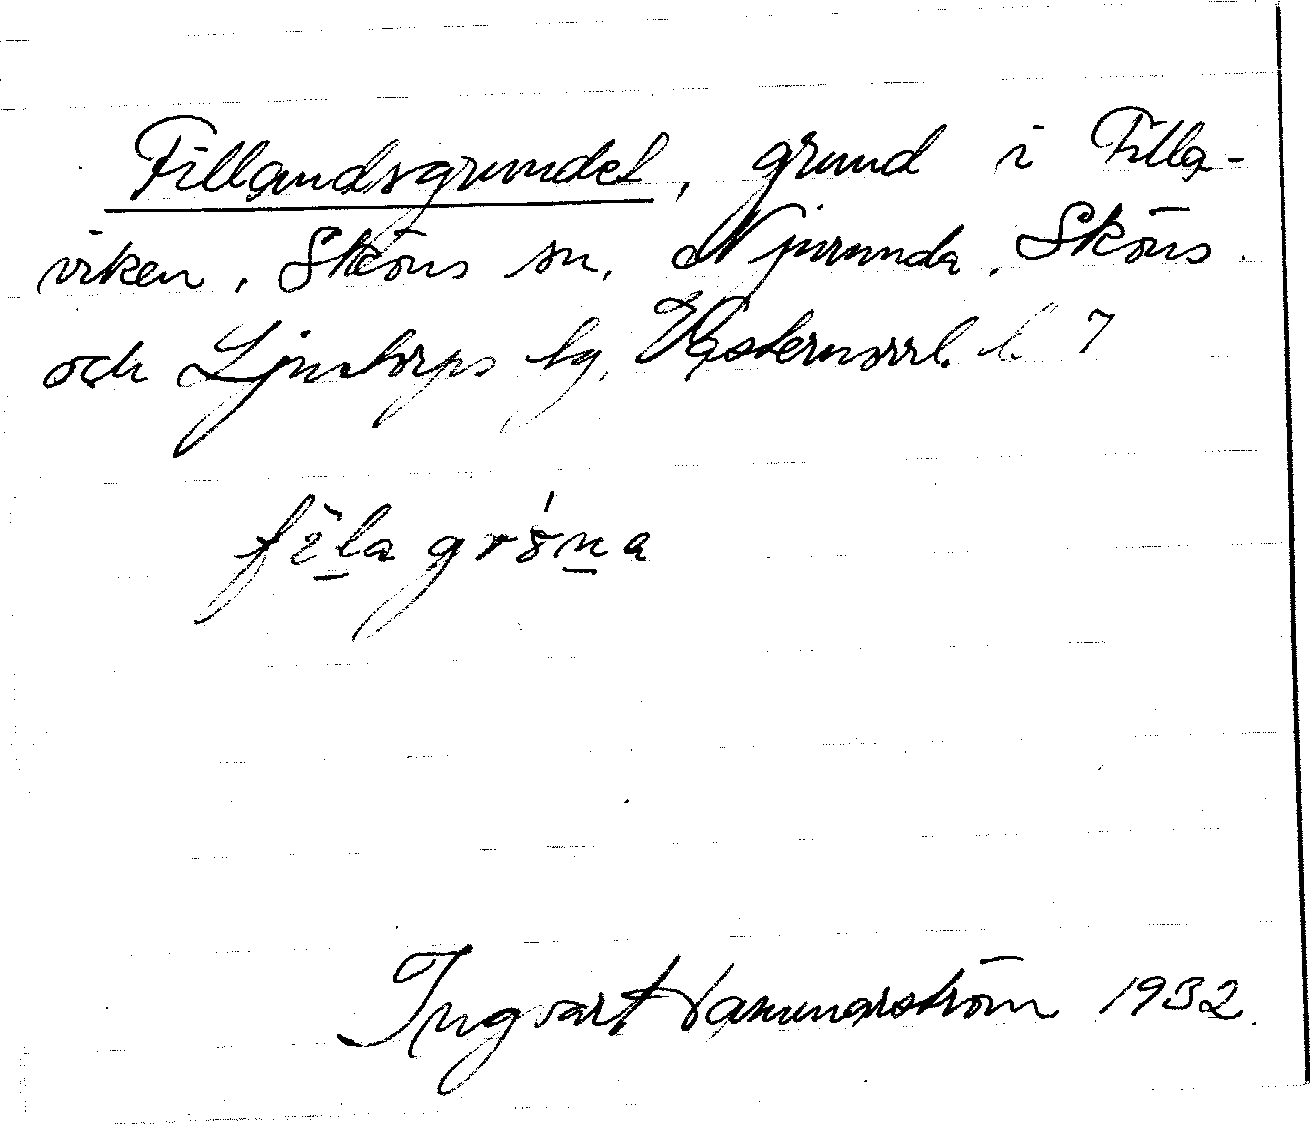 Fillandsgrundet, grund i Filla-
viken, Sköns sn, Njurunda, Sköns
och Ljustorps tg, Västernorrl. l. 7
fìla gróna
Ingvart Hammarström 1932.